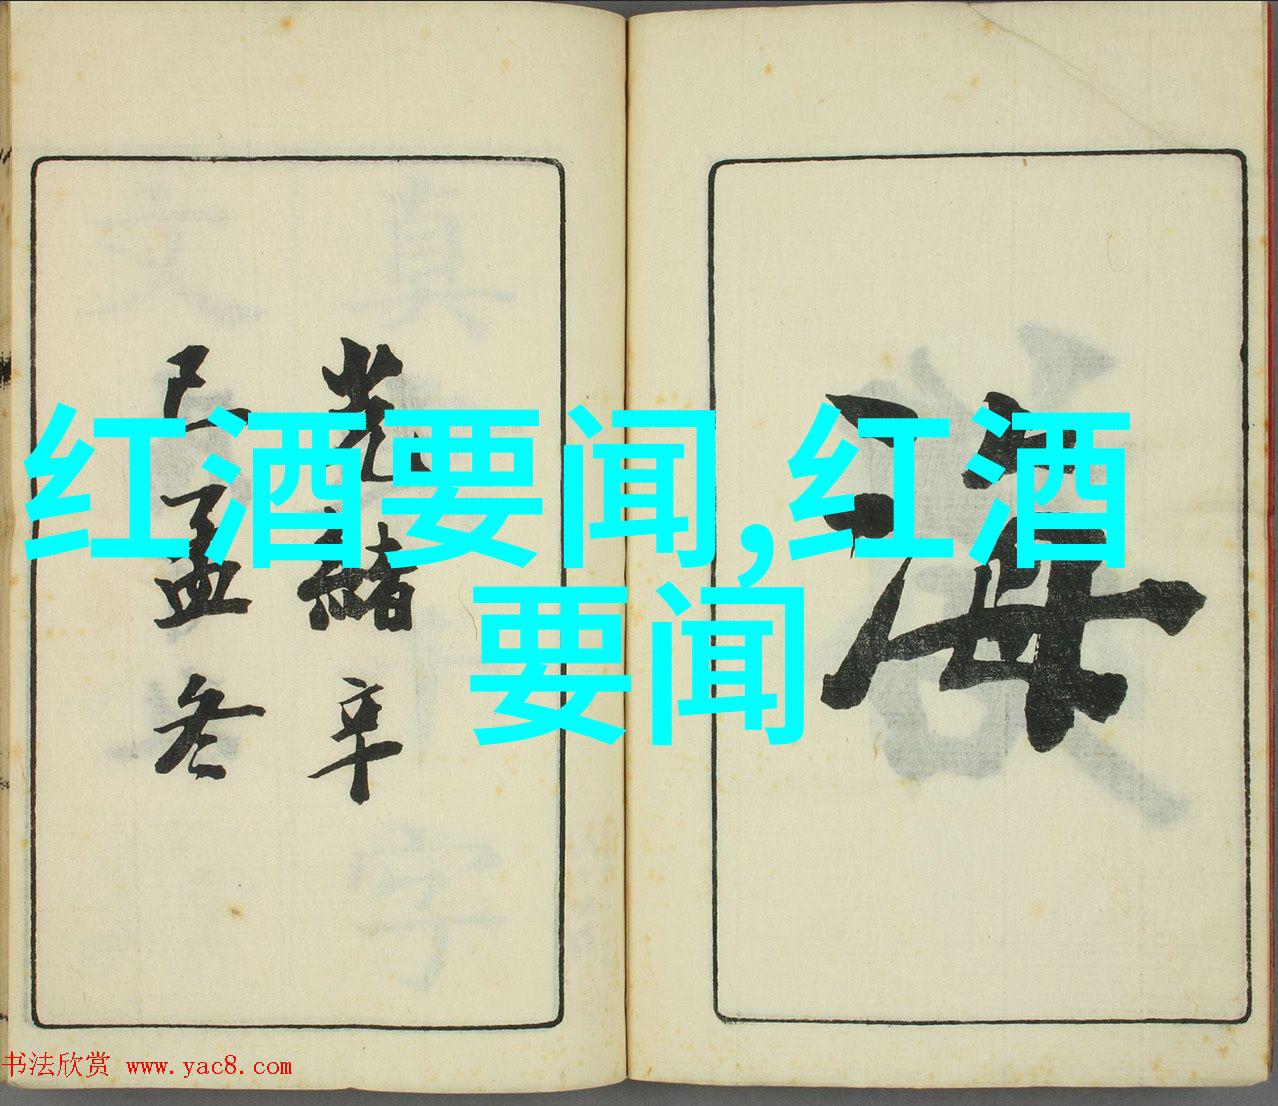 红酒要闻,红酒
要闻
海
光绪辛
丑孟冬
书法欣赏 www.yac8.com